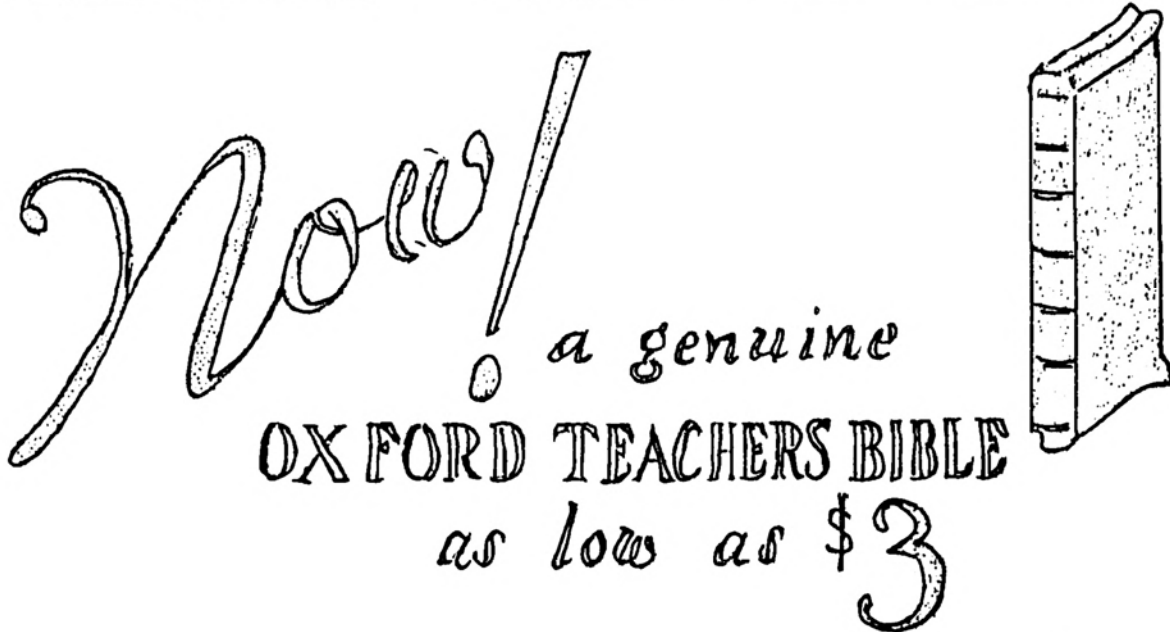 Now!
a genuine
OXFORD TEACHERS BIBLE
as low as $3